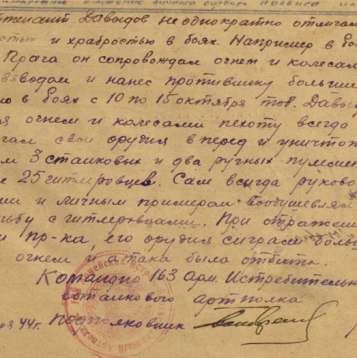 Лейтенант Давыдов неоднократно отличал
и храбростью в боях. Например в бо
Прага он сопровождал огнем и колесам
взводом и нанес противнику больши
в боях с 10 по 15 октября тов. Давы
огнем и колесами пехоту всегда
свои орудия в перед и уничтож
3 станковых и два ручных пулеме
25 гитлеровцев. Сам всегда руково
и личным примером воодушевлял
с гитлеровцами. При отражени
пр-ка, его орудия сыграли боль
огнем и атака была отбита.
Командир 163 Арм. Истребительн
артполка
44г. Подполковник